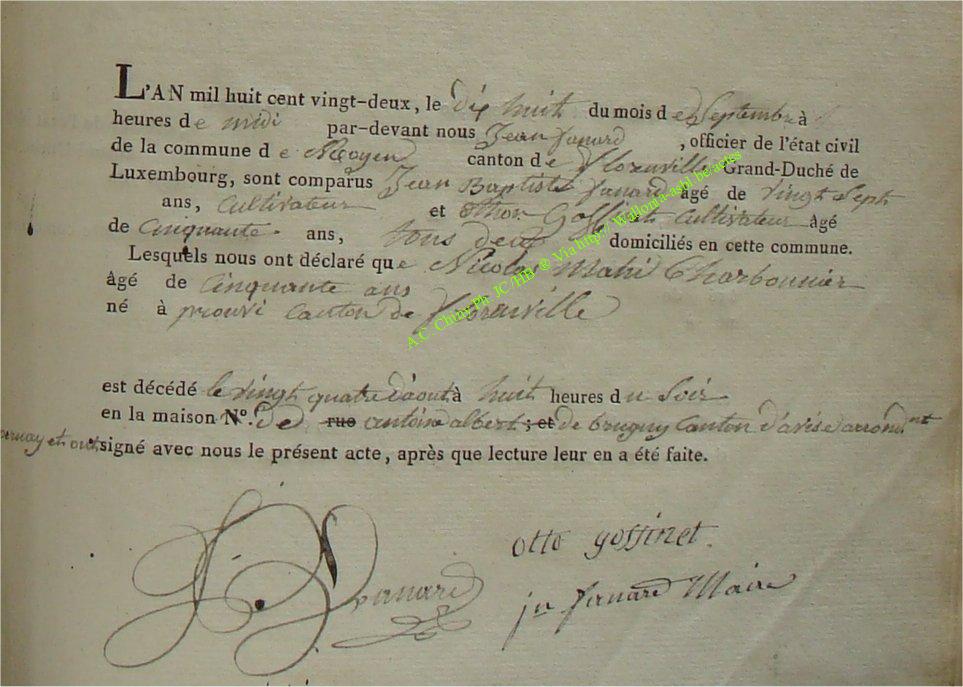 L'AN mil huit cent vingt-deux, le dix huit du mois de Septembre à
heures de midi par-devant nous Jean fanard, officier de l'état civil
de la commune de Moyen canton de florenville Grand-Duché de
Luxembourg, sont comparus Jean Baptiste fanard âgé de vingt Sept
ans, Cultivateur et Cultivateur âgé
de Cinquante ans, tous deux domiciliés en cette commune.
Lesquels nous ont déclaré que Nicolas Mahi Charbonnier
âgé de Cinquante ans
né à prouvi Canton de florenville
A.C. Chiny Ph JC /HB @ Via http:// Wallonia-asbl.be/actes
est décédé le vingt quatre d'aout à huit heures du Soir
en la maison N°. de rue antoine albert ; et de brugny Canton d'avise arrondnt
et ont signé avec nous le présent acte, après que lecture leur en a été faite.
fanard
otto goffinet
jn fanard Maire